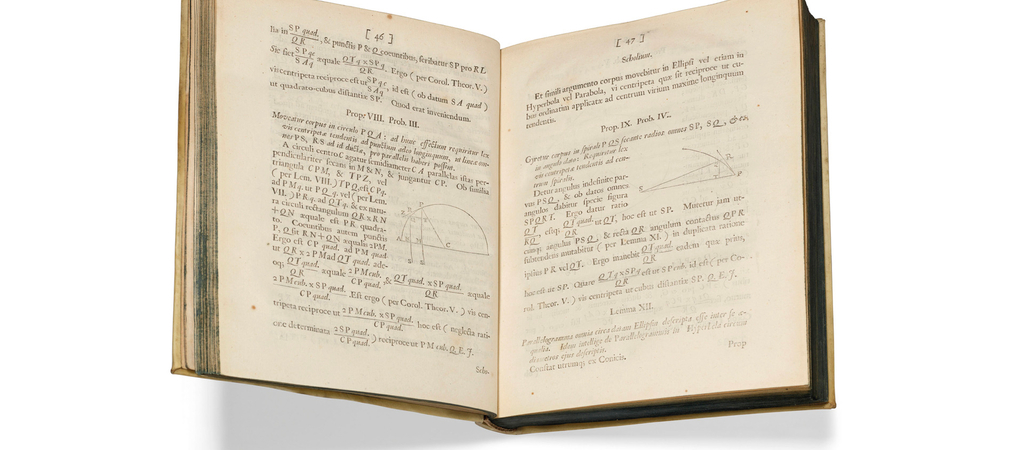 [ 46 ]
lia in SP quad. / QR, & punctis P & Q coeuntibus, scribatur SP pro RL
Sic fiet SP qc / SAq æquale QTq × SPq / QR. Ergo ( per Corol. Theor. V. )
vis centripeta reciproce est ut SPqc / SAq, id est ( ob datum SA quad )
ut quadrato-cubus distantiæ SP. Quod erat inveniendum.
Prop. VIII. Prob. III.
Moveatur corpus in circulo PQA: ad hunc effectum requiritur lex
vis centripetæ tendentis ad punctum adeo longinquum, ut lineæ om-
nes PS, RS ad id ductæ, pro parallelis haberi possint.
A circuli centro C agatur semidiameter CA parallelas istas per-
pendiculariter secans in M & N, & jungantur CP. Ob similia
triangula CPM, & TPZ, vel
( per Lem. VIII. ) TPQ, est CPq.
ad PMq. ut PQq. vel ( per Lem.
VII. ) PRq. ad QTq. & ex natu-
ra circuli rectangulum QR × RN
+ QN æquale est PR quadra-
to. Coeuntibus autem punctis
P, Q fit RN + QN æqualis 2PM.
Ergo est CP quad. ad PM quad.
ut QR × 2PM ad QT quad. ade-
oq; QT quad. / QR æquale 2PM cub. / CP quad. , & QT quad. × SP quad. / QR æquale
2PM cub. × SP quad. / CP quad. . Est ergo ( per Corol. Theor. V. ) vis cen-
tripeta reciproce ut 2PM cub. × SP quad. / CP quad. hoc est ( neglecta rati-
one determinata 2SP quad. / CP quad. ) reciproce ut PM cub. Q. E. I.
Scho-
[ 47 ]
Scholium.
Et simili argumento corpus movebitur in Ellipsi vel etiam in
Hyperbola vel Parabola, vi centripeta quæ sit reciproce ut cu-
bus ordinatim applicatæ ad centrum virium maxime longinquum
tendentis.
Prop. IX. Prob. IV.
Gyretur corpus in spirali PQS secante radios omnes SP, SQ, &c.
in angulo dato: Requiritur lex
vis centripetæ tendentis ad cen-
trum spiralis.
Detur angulus indefinite par-
vus PSQ, & ob datos omnes
angulos dabitur specie figura
SPQRT. Ergo datur ratio
QT / RQ, estq; QT quad. / QR ut QT, hoc est ut SP. Mutetur jam ut-
cunq; angulus PSQ, & recta QR angulum contactus QPR
subtendens mutabitur ( per Lemma XI. ) in duplicata ratione
ipsius PR vel QT. Ergo manebit QT quad. / QR eadem quæ prius,
hoc est ut SP. Quare QTq × SPq / QR est ut SP cub. id est ( per Co-
rol. Theor. V. ) vis centripeta ut cubus distantiæ SP. Q. E. I.
Lemma XII.
Parallelogramma omnia circa datam Ellipsin descripta esse inter se æ-
qualia. Idem intellige de Parallelogrammis in Hyperbola circum
diametros ejus descriptis.
Constat utrumq; ex Conicis.
Prop